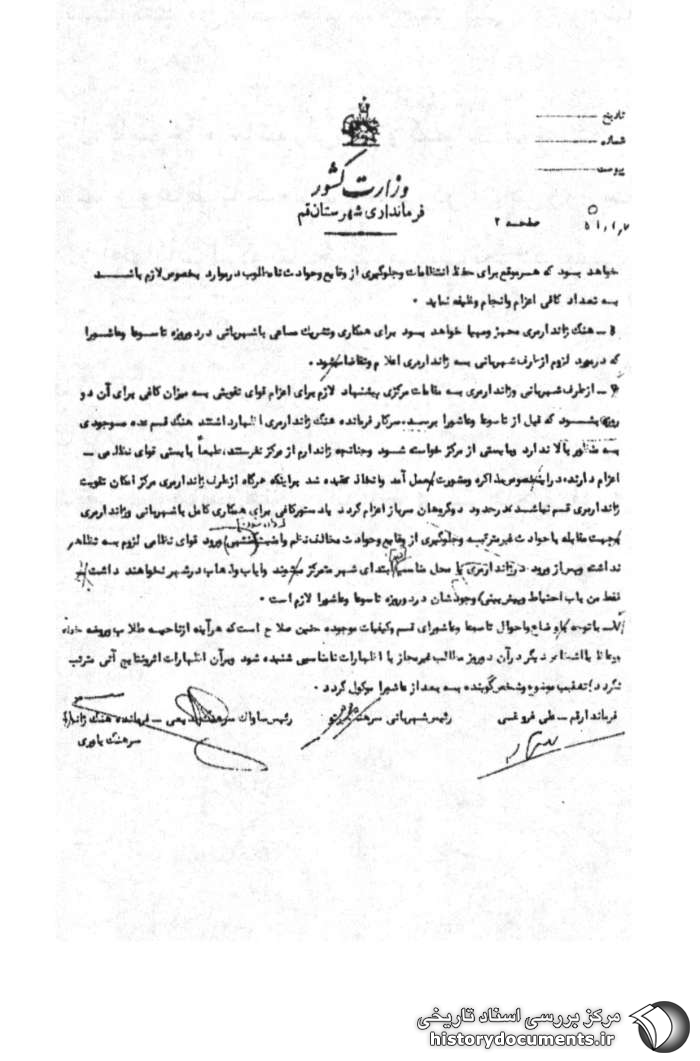 تاریخ
شماره
پیوست
وزارت کشور
فرمانداری شهرستان قم
صفحه ۲
خواهد بود که هر موقع برای حفظ انتظامات و جلوگیری از وقایع و حوادث نامطلوب در موارد بخصوص لازم باشد
به تعداد کافی اعزام و انجام وظیفه نماید ۰
هنگ ژاندارمری مجهز و مهیا خواهد بود برای همکاری و تشریک مساعی با شهربانی در دو روزه تاسوعا و عاشورا
که در مورد لزوم از طرف شهربانی به ژاندارمری اعلام و تقاضا شود ۰
از طرف شهربانی و ژاندارمری به مقامات مرکزی پیشنهاد لازم برای اعزام قوای تقویتی به میزان کافی برای آن دو
روزه بشود که قبل از تاسوعا و عاشورا برسد. سرکار فرمانده هنگ ژاندارمری اظهار داشتند هنگ قم عده موجودی
به منظور بالا ندارد و بایستی از مرکز خواسته شود و چنانچه ژاندارم از مرکز نفرستند، طبعاً بایستی قوای نظامی —
اعزام دارند، در این خصوص مذاکره و مشورت بعمل آمد و اتخاذ عقیده شد براینکه هرگاه از طرف ژاندارمری مرکز امکان تقویت
ژاندارمری قم نباشد در حدود دو گروهان سرباز اعزام گردد با دستور کافی برای همکاری کامل با شهربانی و ژاندارمری
بجهت مقابله با حوادث غیر مترقبه و جلوگیری از وقایع و حوادث مخالف نظم و امنیت ورود قوای نظامی لزوم به تظاهر
نداشته و پس از ورود در ژاندارمری یا محل مناسب ابتدای شهر متمرکز میشوند و ایاب و ذهاب در شهر نخواهند داشت
فقط من باب احتیاط و پیش بینی وجودشان در دو روزه تاسوعا و عاشورا لازم است ۰
با توجه باوضاع و احوال تاسوعا و عاشورای قم و کیفیات موجوده چنین صلاح است که هر آینه از ناحیه طلاب و روضه خوان
و وعاظ یا اشخاص دیگر در آن دو روز مطالب غیر مجاز یا اظهارات نامناسبی شنیده شود و بر آن اظهارات اثر و نتایج آنی مترتب
نگردد تعقیب موضوع و شخص گوینده به بعد از عاشورا موکول گردد ۰
فرماندار قم — علی فروغی
رئیس شهربانی سرهنگ
رئیس ساواک سرهنگ بدیعی — فرمانده هنگ ژاندارمری
سرهنگ یاوری
مرکز بررسی اسناد تاریخی
historydocuments.ir